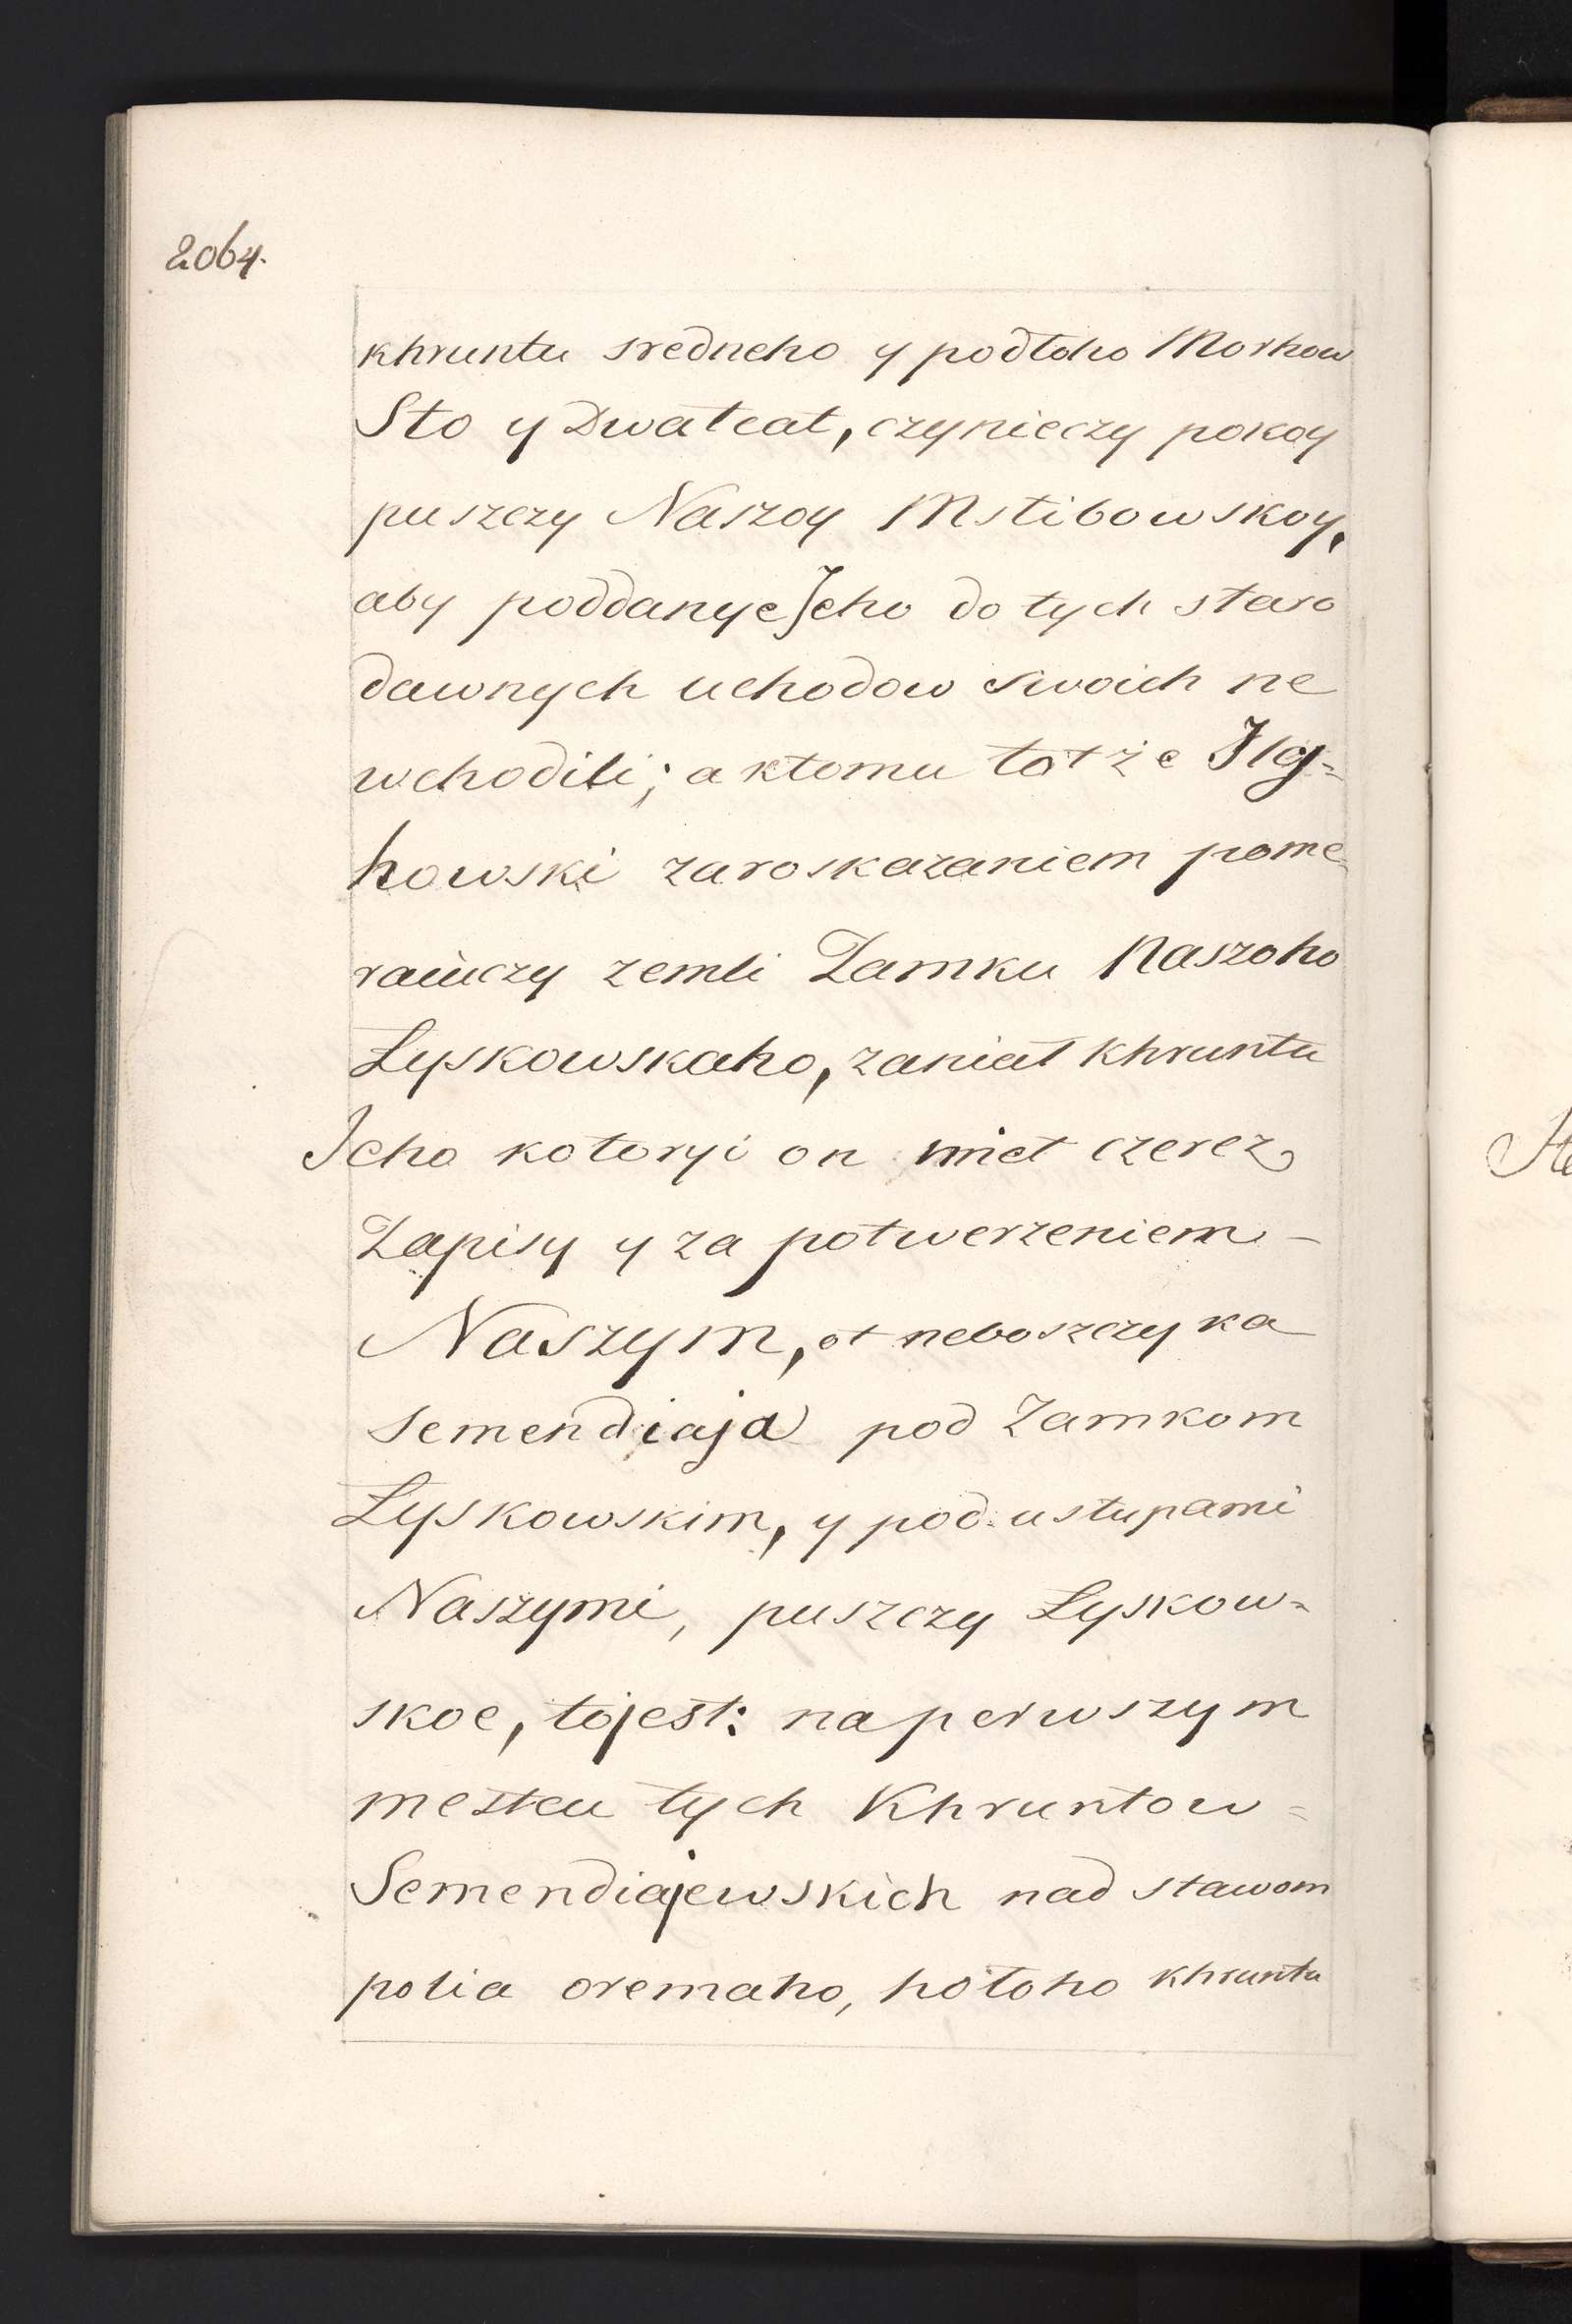 2064.
khruntu sredneho y podłoho Morhow
Sto y Dwatcat, czynieczy pokoy
puszczy Naszoy Mstibowskoy,
aby poddanye Jeho do tych staro
dawnych uchodow swoich ne
wchodili; a ktomu tot że Ilg=
howski za roskazaniem pome=
raiuczy zemli Zamku Naszoho
Łyskowskaho, zaniał khruntu
Jeho kotoryi on mieł czerez
Zapisy y za potwerzeniem -
Naszym, ot neboszczyka
Semendiaja pod Zamkom
Łyskowskim, y pod ustupami
Naszymi, puszczy Łyskow=
skoe, to jest: na perwszym
mestcu tych Khruntow =
Semendiajewskich nad stawom
polia oremaho, hołoho khruntu